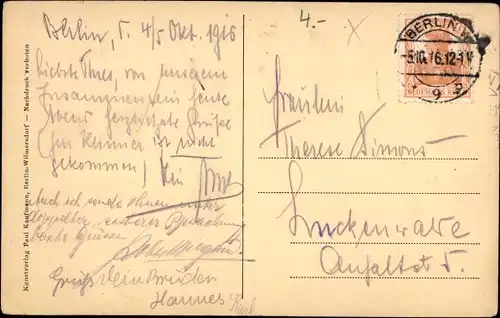 Berlin, d. 4/5 Okt. 1916
4.-
Liebste Thres, von unserem
Zusammensein heute
Abend herzlichste Grüße
(zu Kenner ist nicht
gekommen) Dein
Auch ich sende Ihnen unter
Beobachtung
beste Grüsse
Gruß Dein Bruder
Hannes
Karl
Kunstverlag Paul Kaufmann, Berlin-Wilmersdorf — Nachdruck verboten
BERLIN W
-5.10.16.12-1V
* 9 *
Fräulein
Therese Simons
Luckenwalde
Anhaltst 5.